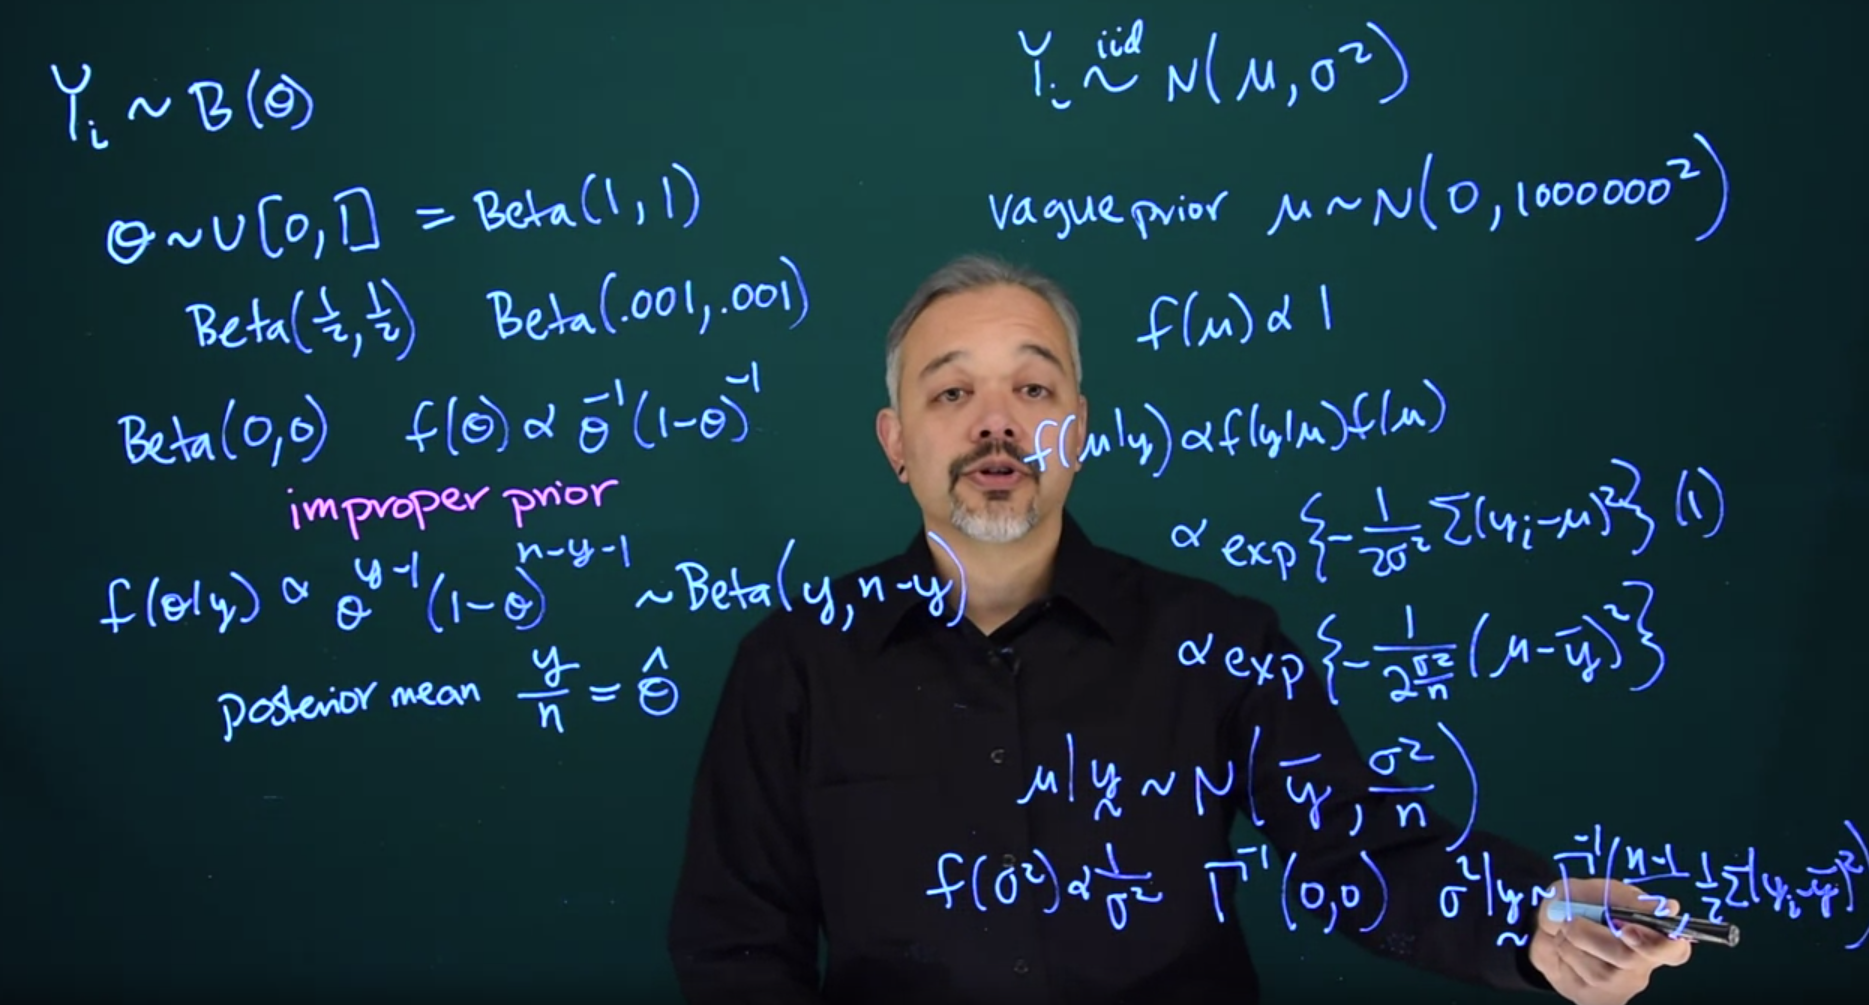 Y_i ~ B(θ)
θ ~ U[0,1] = Beta(1,1)
Beta(½,½) Beta(.001,.001)
Beta(0,0) f(θ) ∝ θ⁻¹(1-θ)⁻¹
improper prior
f(θ|y) ∝ θ^{y-1}(1-θ)^{n-y-1} ~ Beta(y,n-y)
posterior mean y/n = θ̂
Y_i iid ~ N(μ,σ²)
vague prior μ ~ N(0,1000000²)
f(μ) ∝ 1
f(μ|y) ∝ f(y|μ)f(μ)
∝ exp{-1/(2σ²) Σ(y_i-μ)²} (1)
∝ exp{-1/(2 σ²/n) (μ-ȳ)²}
μ|y ~ N(ȳ, σ²/n)
f(σ²) ∝ 1/σ² Γ⁻¹(0,0) σ²|y ~ Γ⁻¹((n-1)/2, ½Σ(y_i-ȳ)²)